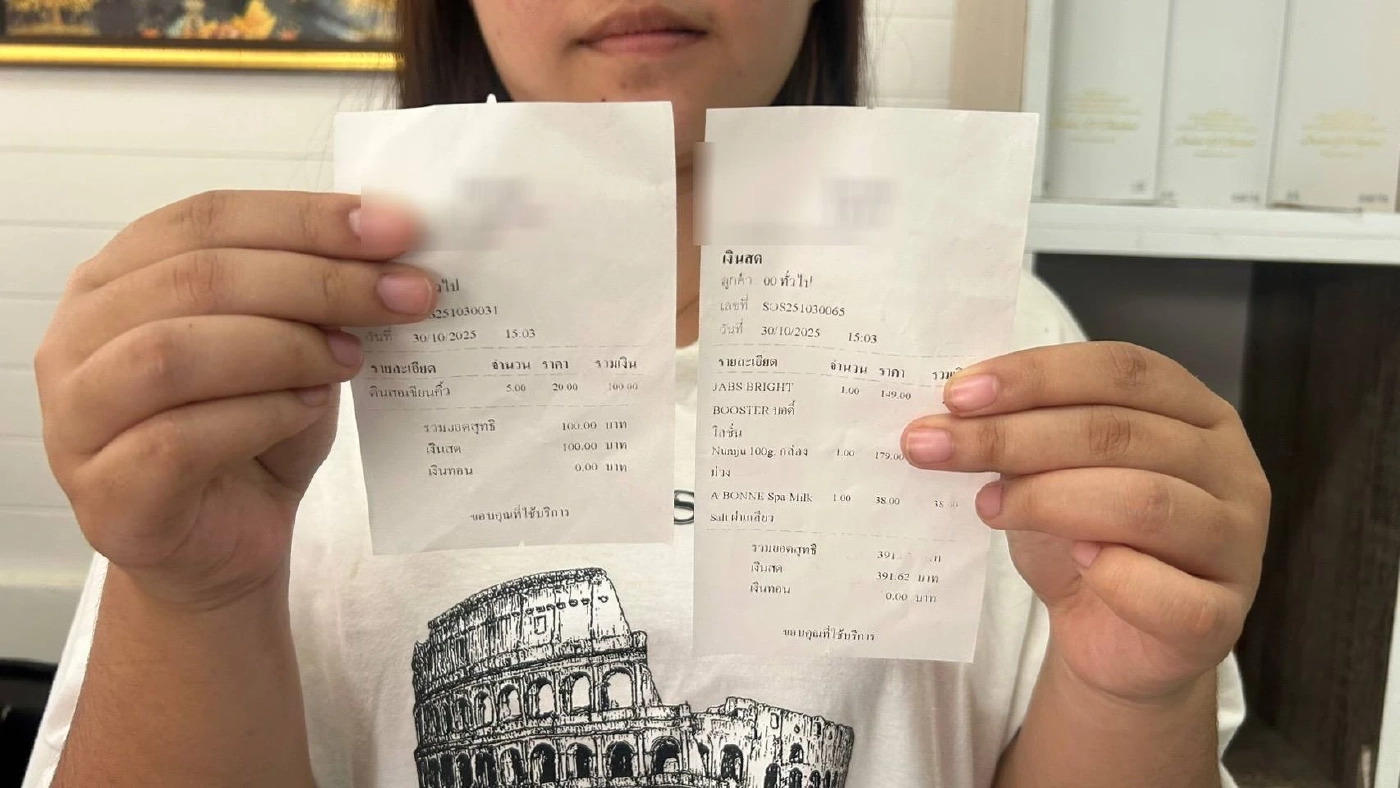 วไป
S251030031
วันที่ 30/10/2025 15:03
รายละเอียด จำนวน ราคา รวมเงิน
ดินสอเขียนคิ้ว 5.00 20.00 100.00
รวมยอดสุทธิ 100.00 บาท
เงินสด 100.00 บาท
เงินทอน 0.00 บาท
ขอบคุณที่ใช้บริการ
เงินสด
ลูกค้า 00 ทั่วไป
เลขที่ SOS251030065
วันที่ 30/10/2025 15:03
รายละเอียด จำนวน ราคา
JABS BRIGHT 1.00 149.00
BOOSTER บอดี้
โลชั่น
100g. กล่อง 1.00 179.00
ม่วง
A BONNE Spa Milk 1.00 38.00 38
Salt ฝาเกลียว
รวมยอดสุทธิ 391
เงินสด 391.62 บาท
เงินทอน 0.00 บาท
ขอบคุณที่ใช้บริการ